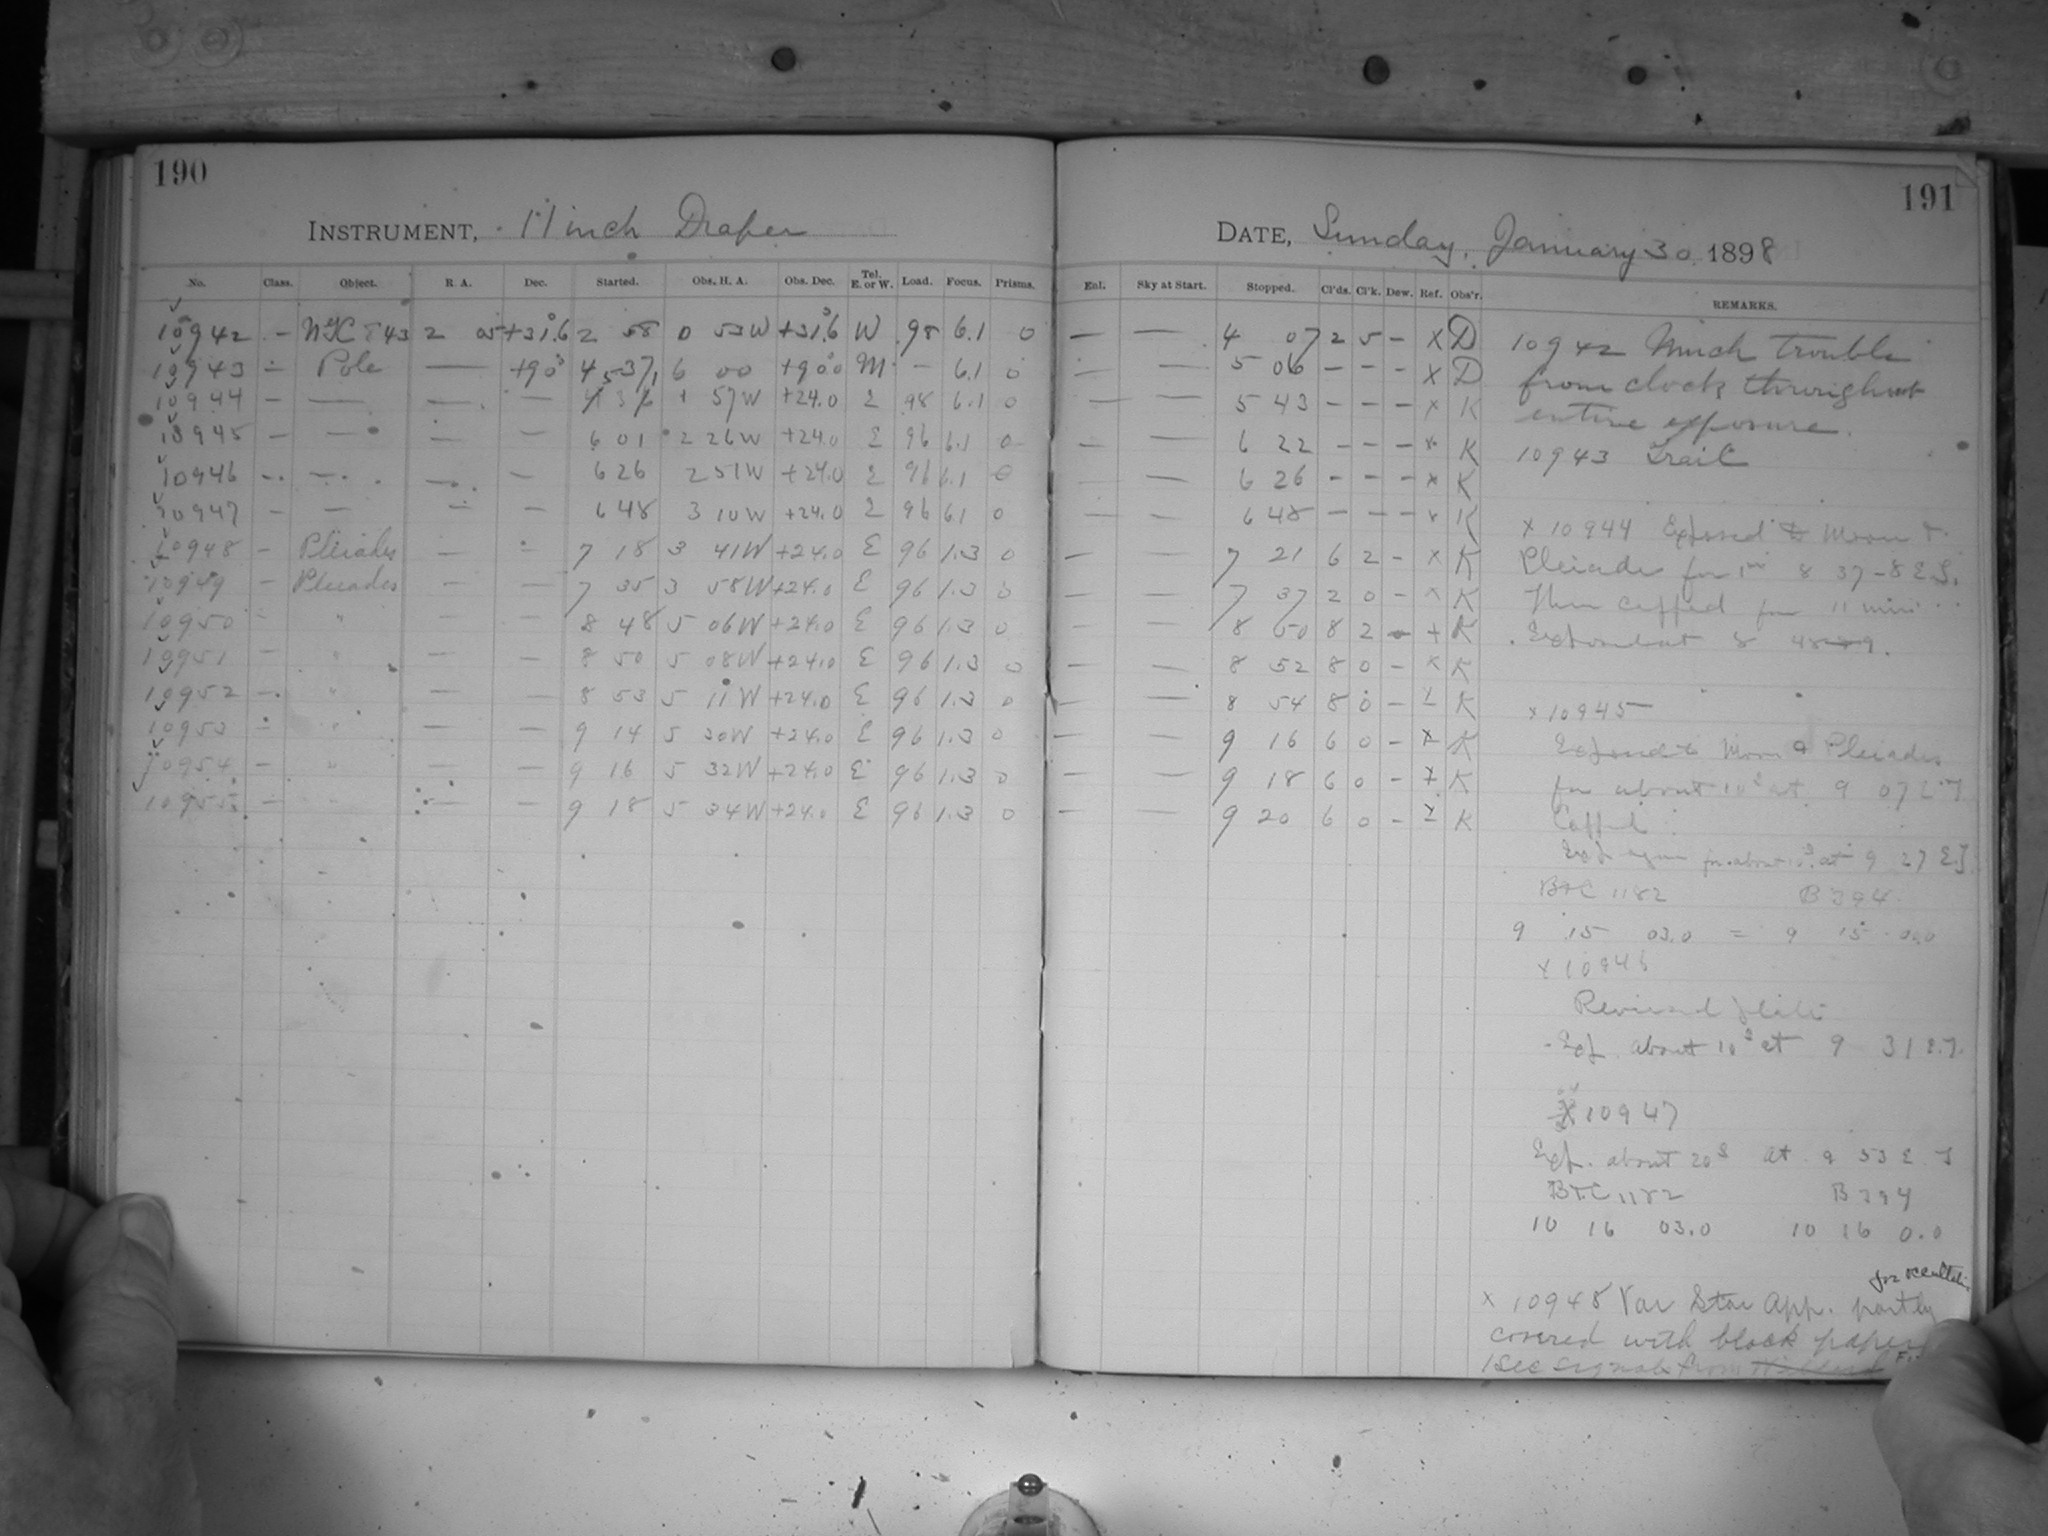 190
INSTRUMENT, 11 inch Draper
No. Class. Object. R. A. Dec. Started. Obs. H. A. Obs. Dec. Tel. E. or W. Load. Focus. Prisms.
10942 — NGC 843 2 05 +31.6 2 58 0 53W +31.6 W 98 6.1 0
10943 — Pole — +90° 4 6 00 +90.0 M — 6.1 0
10944 — — — — 57W +24.0 E 98 6.1 0
10945 — — — — 6 01 2 26W +24.0 E 96 6.1 0
10946 — — — — 6 26 2 51W +24.0 E 96 6.1 0
10947 — — — — 6 48 3 10W +24.0 E 96 6.1 0
10948 — Pleiades — — 7 18 3 41W +24.0 E 96 1.3 0
10949 — Pleiades — — 7 35 3 58W +24.0 E 96 1.3 0
10950 — " — — 8 48 5 06W +24.0 E 96 1.3 0
10951 — " — — 8 50 5 08W +24.0 E 96 1.3 0
10952 — " — — 8 53 5 11W +24.0 E 96 1.3 0
10953 — " — — 9 14 5 30W +24.0 E 96 1.3 0
10954 — " — — 9 16 5 32W +24.0 E 96 1.3 0
10955 — " — — 9 18 5 34W +24.0 E 96 1.3 0
191
DATE, Sunday, January 30, 1898
Enl. Sky at Start. Stopped. Cl'ds. Cl'k. Dew. Ref. Obs'r. REMARKS.
— — 4 07 2 5 — X D
— — 5 06 — — — X D
— — 5 43 — — — x K
— — 6 22 — — — x K
— — 6 26 — — — x K
— — 6 48 — — — x K
— — 7 21 6 2 — x K
— — 7 37 2 0 — x K
— — 8 50 8 2 — + K
— — 8 52 8 0 — x K
— — 8 54 8 0 — K
— — 9 16 6 0 — x K
— — 9 18 6 0 — x K
— — 9 20 6 0 — K
10942 Much trouble
from clock throughout
entire exposure.
10943 Trail
x 10944 Exposed to Moon &
Pleiades for 1m 8 37-8 E.T.
Then capped for 11 min
8
x 10945
Exposed to Moon & Pleiades
for about 10s at 9 07 E.T.
Capped
Exp again for about at 9 27 E.T.
BTC 1182 B 394
9 15 03.0 = 9 15 0.0
x 10946
Reversed plate
Exp. about 10s at 9 31 E.T.
X 10947
Exp. about 20s at 9 53 E.T
BTC 1182 B 394
10 16 03.0 10 16 0.0
for occultation
x 10948 Var Star App. partly
covered with black paper
See signals from